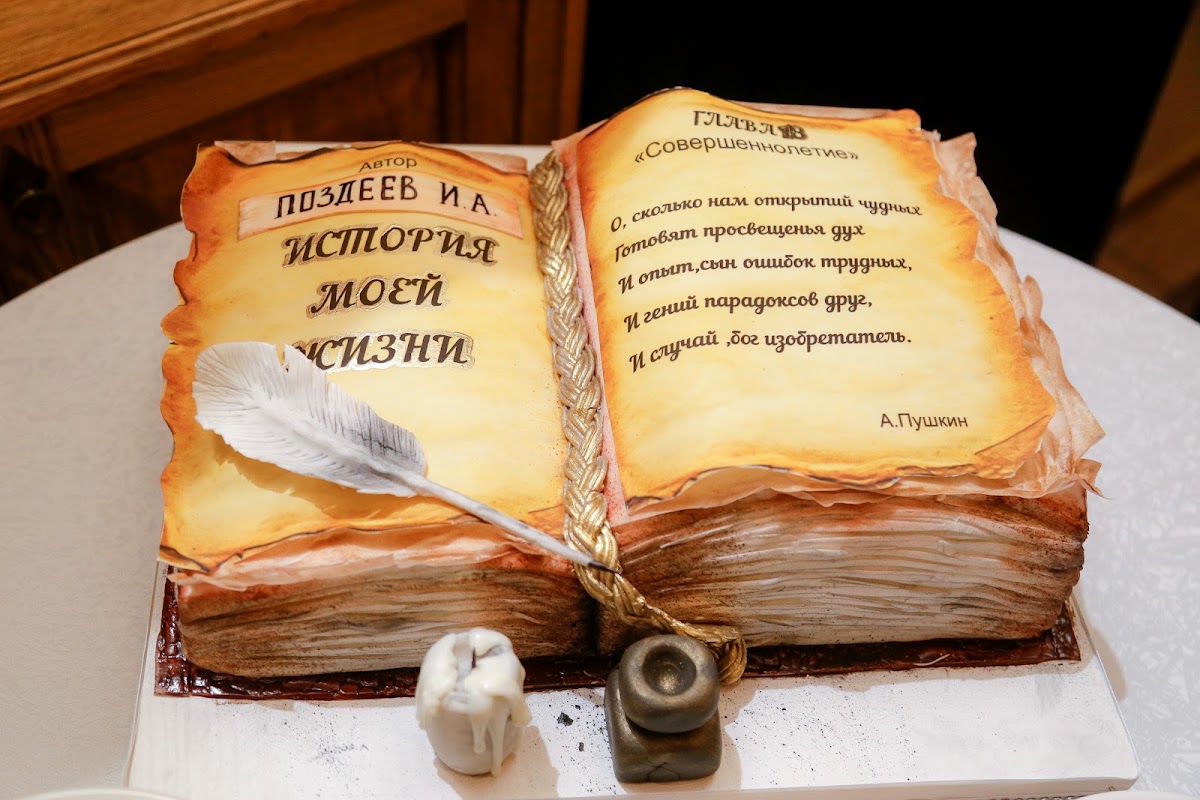 Автор
ПОЗДЕЕВ И.А.
ИСТОРИЯ
МОЕЙ
ЖИЗНИ
ГЛАВА 18
«Совершеннолетие»
О, сколько нам открытий чудных
Готовят просвещенья дух
И опыт,сын ошибок трудных,
И гений парадоксов друг,
И случай ,бог изобретатель.
А.Пушкин